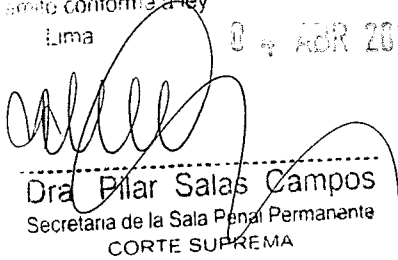 conforme a ley
Lima 04 ABR 20
Dra Pilar Salas Campos
Secretaria de la Sala Penal Permanente
CORTE SUPREMA